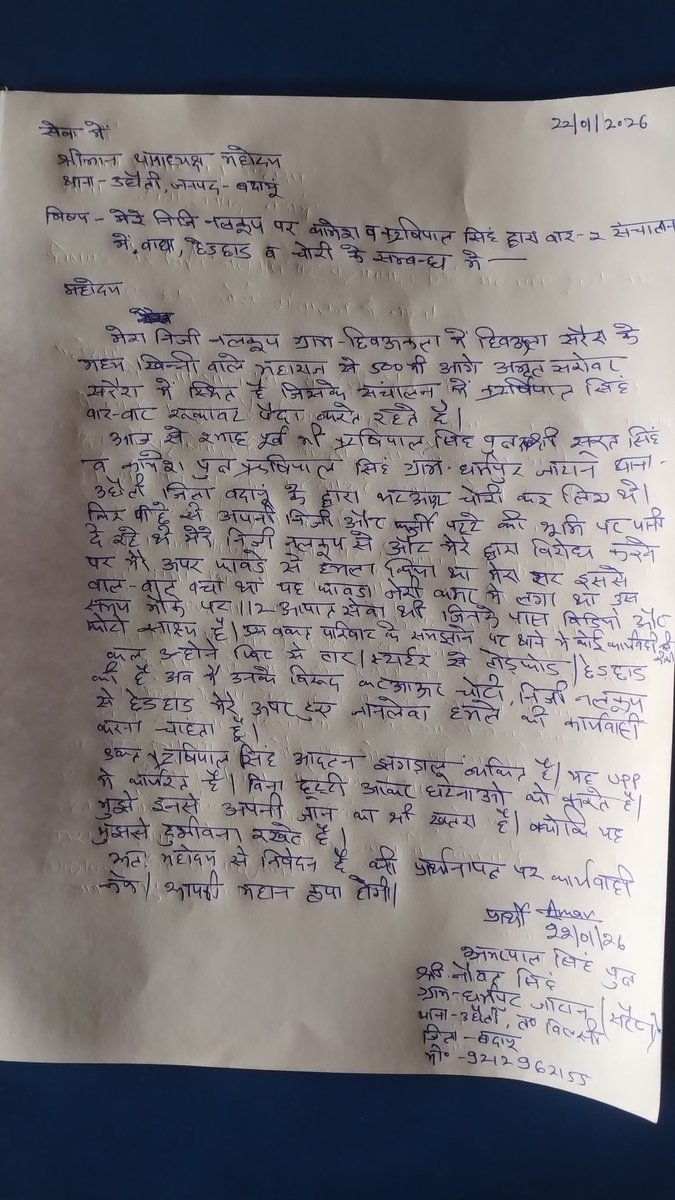 22/01/2026
सेवा में
श्रीमान थानाध्यक्ष महोदय
थाना-उघैती, जनपद-बदायूं
विषय - मेरे निजि नलकूप पर कामेश व ऋषिपाल सिंह द्वारा बार-२ संचालन
में, बाधा, छेड़छाड व चोरी के सम्बन्ध में —
महोदय
मेरा निजी नलकूप ग्राम- में सरैरा के
मध्य खिन्नी वाले महाराज से 500 मी आगे अमृत सरोवर
सरैरा में स्थित है जिसके संचालन में ऋषिपाल सिंह
बार-बार रूकावट पैदा करते रहते है|
आज से पूर्व भी ऋषिपाल सिंह पुत्र सूरत सिंह
व कामेश पुत्र ऋषिपाल सिंह ग्राम-धर्मपुर थाना-
उघैती जिला बदायूं के द्वारा चोरी कर लिए थे|
अपनी निजी और पट्टे की भूमि पर पानी
दे रहे थे मेरे निजी नलकूप से और मेरे द्वारा विरोध करने
पर मेरे ऊपर फावडे से हमला किया था मेरा सर इससे
बाल-बाट बचा था यह फावडा मेरी कमर में लगा था उस
समय मौके पर 112 आपात सेवा थी जिनके पास विडियो और
फोटो है| उस वक्त परिवार के समझाने पर थाने में कोई कार्यवाही
कल उन्होंने फिर से तार/स्टार्टर से तोडफोड/छेडछाड
की है अब मैं उनके विरूद्ध चोरी, निजी नलकूप
से छेडछाड मेरे ऊपर हुए जानलेवा हमले की कार्यवाही
करना चाहता हूँ|
उक्त ऋषिपाल सिंह आदतन झगडालू व्यक्ति है| यह UPP
में कार्यरत है| बिना छुट्टी आकर घटनाओ को करते है|
मुझे इनसे अपनी जान का भी खतरा है| क्योंकि यह
मुझसे दुर्भावना रखते है|
अतः महोदय से निवेदन है की प्रार्थनापत्र पर कार्यवाही
आपकी महान कृपा होगी|
प्रार्थी Amar
22/01/26
अमरपाल सिंह पुत्र
श्री नौबत सिंह
ग्राम-धर्मपुर
थाना-उघैती, त० बिल्सी
जिला-बदायूं
मो०-9212962155